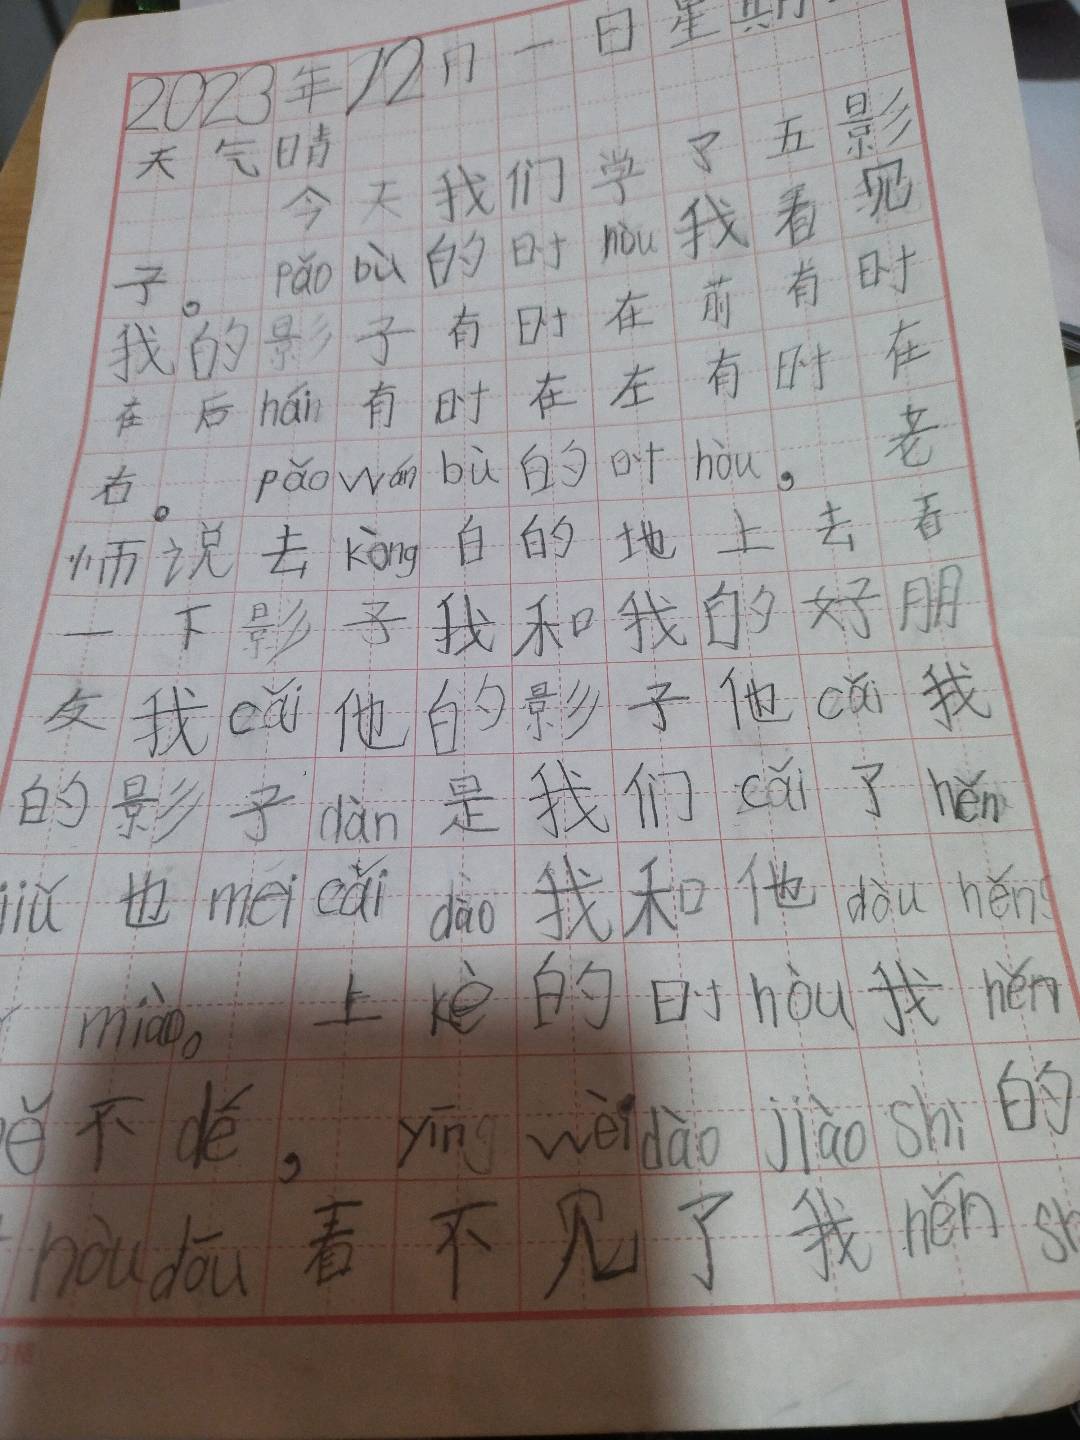 2023年12月一日星期
天气晴
今天我们学了五影
子。pǎo bù的时hòu我看见
我的影子有时在前有时
在后hán有时在左有时在
右。pǎo wán bù的时hòu。老
师说去kòng白的地上去看
一下影子我和我的好朋
友我cǎi他的影子他cǎi我
的影子dàn是我们cǎi了hěn
jiǔ也méi cǎi dào我和他dòu hěn
miào。上kè的时hòu我hěn
不dé，yīng wèi dào jiào shì的
hòu dōu看不见了我hěn sh